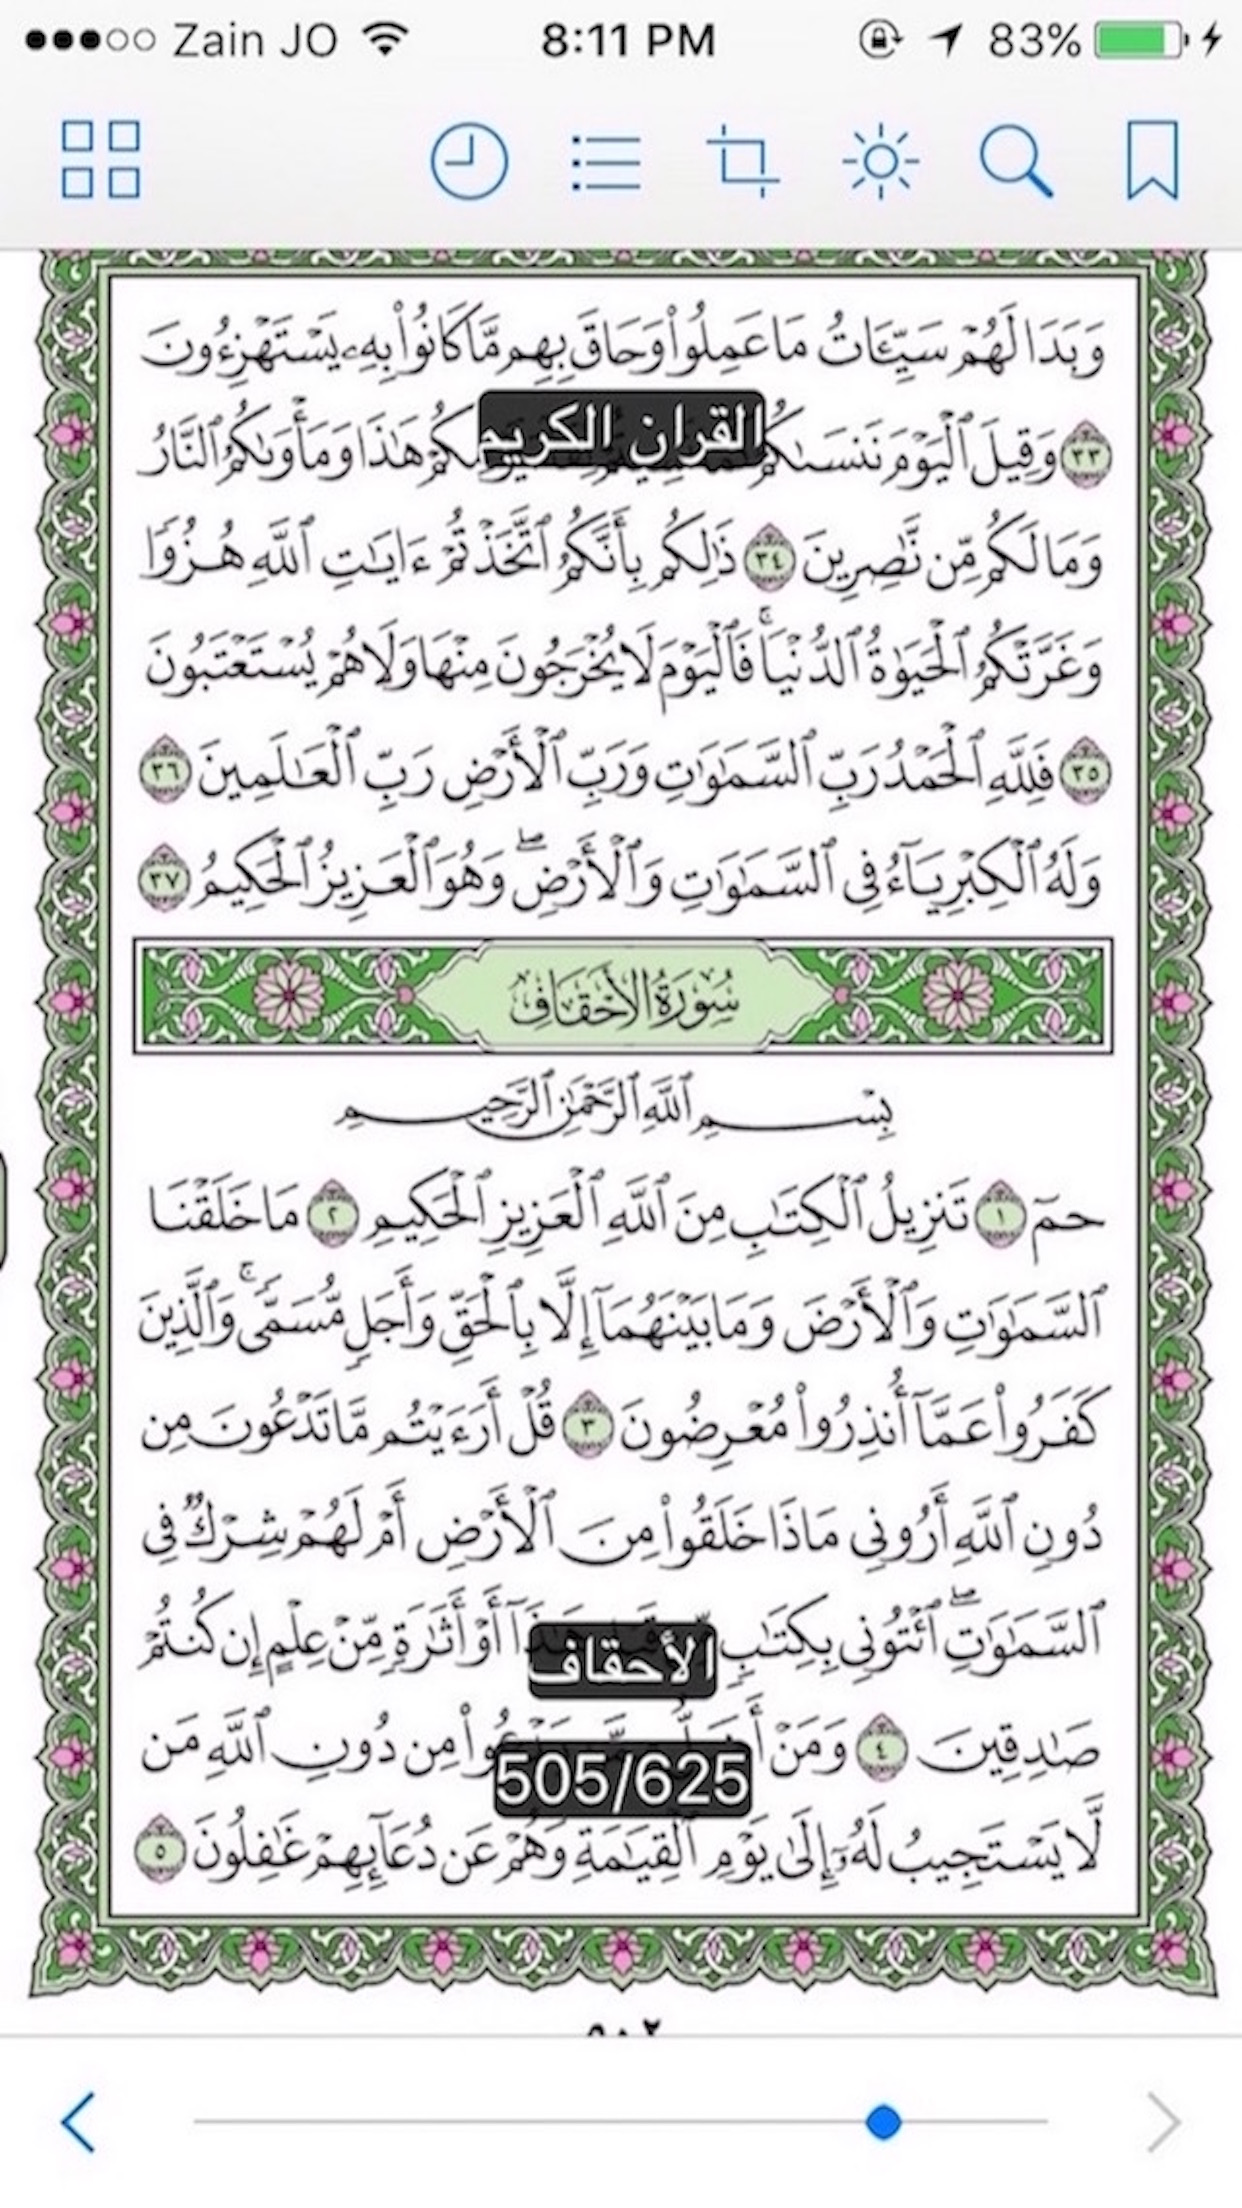 Zain JO 8:11 PM 83%
وَبَدَا لَهُمْ سَيِّـَٔاتُ مَا عَمِلُوا۟ وَحَاقَ بِهِم مَّا كَانُوا۟ بِهِۦ يَسْتَهْزِءُونَ
القران الكريم
٣٣ وَقِيلَ ٱلْيَوْمَ نَنسَىٰكُمْ هَٰذَا وَمَأْوَىٰكُمُ ٱلنَّارُ
وَمَا لَكُم مِّن نَّٰصِرِينَ ٣٤ ذَٰلِكُم بِأَنَّكُمُ ٱتَّخَذْتُمْ ءَايَٰتِ ٱللَّهِ هُزُوًا
وَغَرَّتْكُمُ ٱلْحَيَوٰةُ ٱلدُّنْيَا ۚ فَٱلْيَوْمَ لَا يُخْرَجُونَ مِنْهَا وَلَا هُمْ يُسْتَعْتَبُونَ
٣٥ فَلِلَّهِ ٱلْحَمْدُ رَبِّ ٱلسَّمَٰوَٰتِ وَرَبِّ ٱلْأَرْضِ رَبِّ ٱلْعَٰلَمِينَ ٣٦
وَلَهُ ٱلْكِبْرِيَآءُ فِى ٱلسَّمَٰوَٰتِ وَٱلْأَرْضِ ۖ وَهُوَ ٱلْعَزِيزُ ٱلْحَكِيمُ ٣٧
سُورَةُ الأَحْقَافِ
بِسْمِ ٱللَّهِ ٱلرَّحْمَٰنِ ٱلرَّحِيمِ
حمٓ ١ تَنزِيلُ ٱلْكِتَٰبِ مِنَ ٱللَّهِ ٱلْعَزِيزِ ٱلْحَكِيمِ ٢ مَا خَلَقْنَا
ٱلسَّمَٰوَٰتِ وَٱلْأَرْضَ وَمَا بَيْنَهُمَآ إِلَّا بِٱلْحَقِّ وَأَجَلٍ مُّسَمًّى ۚ وَٱلَّذِينَ
كَفَرُوا۟ عَمَّآ أُنذِرُوا۟ مُعْرِضُونَ ٣ قُلْ أَرَءَيْتُم مَّا تَدْعُونَ مِن
دُونِ ٱللَّهِ أَرُونِى مَاذَا خَلَقُوا۟ مِنَ ٱلْأَرْضِ أَمْ لَهُمْ شِرْكٌ فِى
ٱلسَّمَٰوَٰتِ ۖ ٱئْتُونِى بِكِتَٰبٍ هَٰذَآ أَوْ أَثَٰرَةٍ مِّنْ عِلْمٍ إِن كُنتُمْ
الأحقاف
صَٰدِقِينَ ٤ وَمَنْ مِن دُونِ ٱللَّهِ مَن
505/625
لَّا يَسْتَجِيبُ لَهُۥٓ إِلَىٰ يَوْمِ ٱلْقِيَٰمَةِ وَهُمْ عَن دُعَآئِهِمْ غَٰفِلُونَ ٥